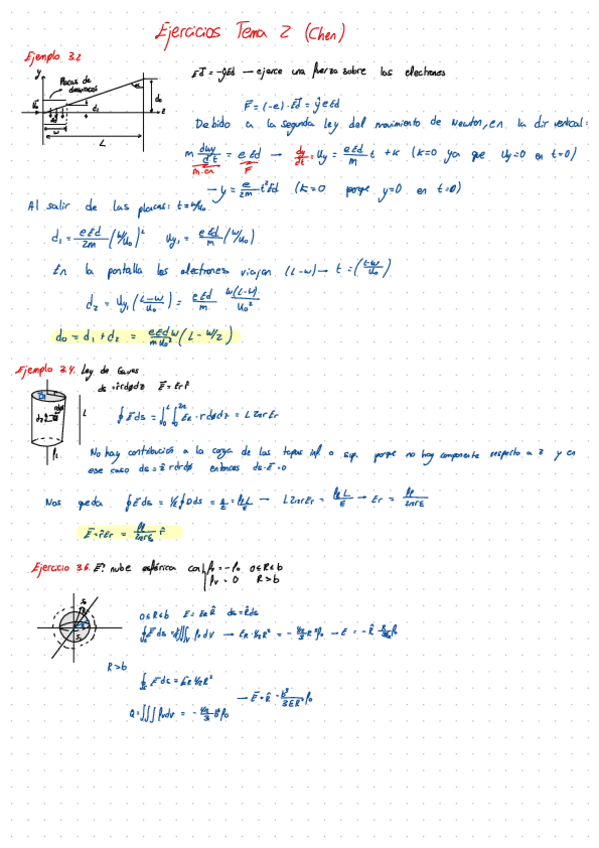 Ejercicios Tema 2 (Chen)
Ejemplo 3.2
Placas de
E⃗d = -ŷEd → ejerce una fuerza sobre los electrones
F̄ = (-e)·E⃗d = ŷeEd
Debido a la segunda ley del movimiento de Newton, en la dir vertical:
m duy/dt = eEd → dy/dt = uy = eEd/m t + K (K=0 ya que uy=0 en t=0)
m·a F
→ y = e/2m t²Ed (K=0 porque y=0 en t=0)
Al salir de las placas: t=w/u₀
d₁ = eEd/2m (w/u₀)² uy₁ = eEd/m (w/u₀)
En la pantalla los electrones viajan (L-w) →
d₂ = uy₁ (L-w/u₀) = eEd/m w(L-w)/u₀²
d₀ = d₁ + d₂ = eEdw/mu₀² (L - w/2)
Ejemplo 3.4. Ley de Gauss
ds = r̂rdφdz E̅ = Err̂
L
∮E̅ds = ∫₀ᴸ∫₀²π Er·rdφdz = L2πrEr
No hay contribución a la carga de las tapas inf. o sup. porque no hay componente respecto a z y en
ese caso ds = ẑrdrdφ entonces ds·E̅=0
Nos queda ∮E̅ds = 1/ε∮Dds = Q/ε = ρlL/ε → L2πrEr = ρlL/ε → Er = ρl/2πrε
E̅ = r̂Er = ρl/2πrε₀ r̂
Ejercicio 3.6. E? nube esférica con ρv = -ρ₀ 0≤R≤b
ρv = 0 R>b
0≤R≤b E̅ = ERR̂ ds = R̂ds
R>b
∮E̅ds = ER4πR²
→ E̅ = R̂ - b³/3εR² ρ₀
Q = ∭ρvdv = -4π/3 b³ρ₀